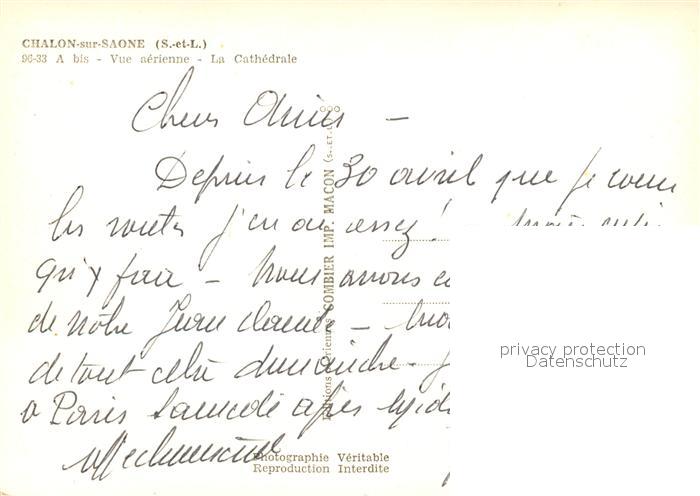 CHALON-sur-SAONE (S.-et-L.)
96-33 A bis - Vue aérienne - La Cathédrale
Chers Amis -
Depuis le 30 avril que je cours
les routes j'en ai assez!
Qu'y faire - Nous avons
de notre Jean Claude -
de tout cela dimanche -
à Paris Samedi après midi
Affectueusement
Editions aériennes COMBIER IMP. MACON (S.-ET-L.)
Photographie Véritable
Reproduction Interdite
privacy protection
Datenschutz